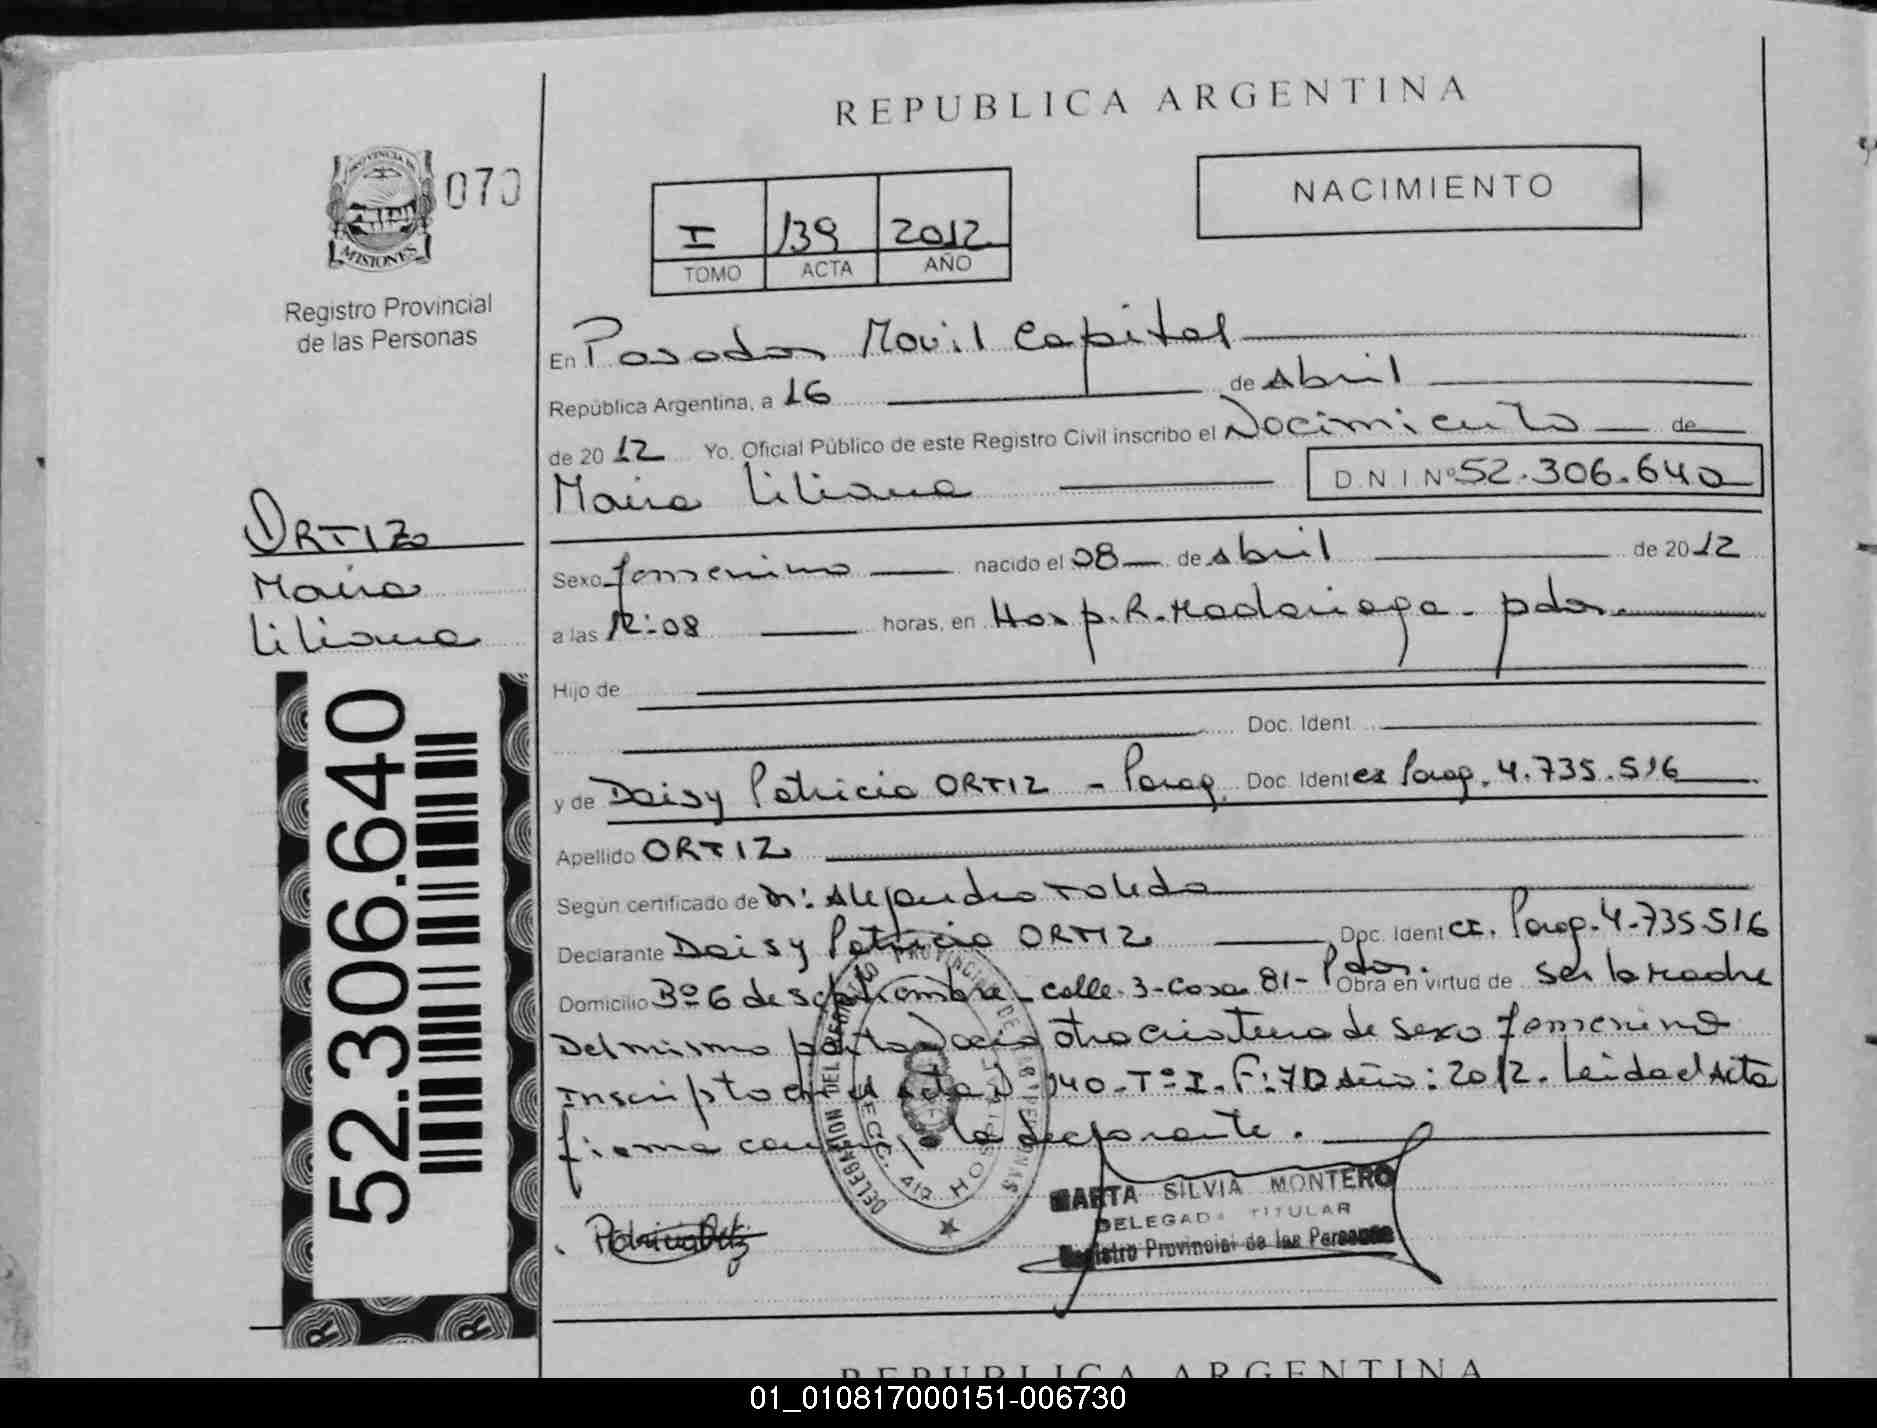 REPUBLICA ARGENTINA
PROVINCIA DE
MISIONES
070
Registro Provincial
de las Personas
NACIMIENTO
I 139 2012
TOMO ACTA AÑO
En Posadas Movil Capital
República Argentina, a 16 de Abril
de 2012 Yo, Oficial Público de este Registro Civil inscribo el Nacimiento de
Maira Liliana D.N.I Nº 52.306.640
ORTIZ
Maira
Liliana
Sexo femenino nacido el 08 de Abril de 2012
a las 12:08 horas, en Hosp. R. Madariaga - pdas.
Hijo de
Doc. Ident
y de Daisy Patricia ORTIZ - Parag. Doc. Ident CI Parag. 4.735.516
Apellido ORTIZ
Según certificado de Dr: Alejandro Toledo
Declarante Daisy Patricia ORTIZ Doc. Ident CI. Parag. 4.735.516
Domicilio Bº 6 de septiembre - calle 3 - casa 81 - Pdas. Obra en virtud de ser la madre
Del mismo parto nacio otra criatura de sexo femenino
Inscripto en el acta 140 - Tº I - F: 70 Año: 2012. Leida el Acta
firma la declarante.
52.306.640
DELEGACION DEL REGISTRO PROVINCIAL DE LAS PERSONAS
SECC. 417 HOSP
MARTA SILVIA MONTERO
DELEGADA TITULAR
Registro Provincial de las Personas
REPUBLICA ARGENTINA
01_010817000151-006730